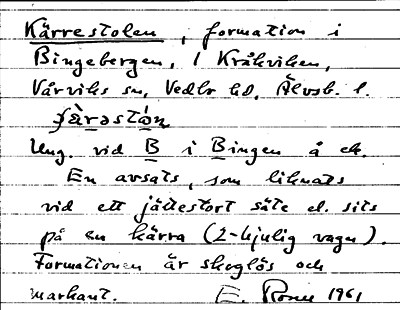 Kärrestolen, formation i
Bingebergen, i Kråkviken,
Vårviks sn, Vedbo hd, Älvsb. l.
Ung. vid B i Bingen å ek.
En avsats, som liknats
vid ett jättestort säte el. sits
på en kärra (2-hjulig vagn).
Formationen är skoglös och
markant. E. 1961